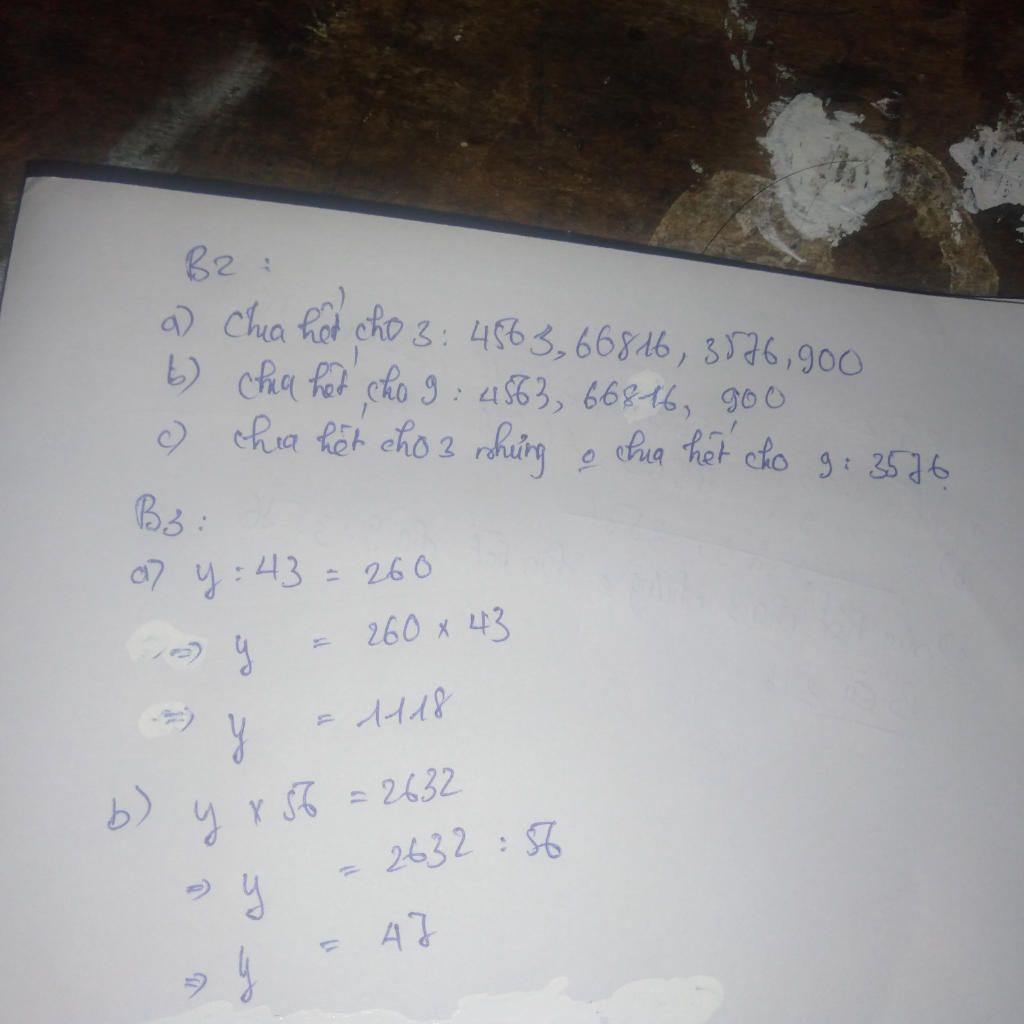 B2 :
a) Chia hết cho 3 : 4563, 66816, 3576, 900
b) chia hết cho 9 : 4563, 66816, 900
c) chia hết cho 3 nhưng o chia hết cho 9 : 3576.
B3 :
a) y : 43 = 260
=> y = 260 x 43
=> y = 1118
b) y x 56 = 2632
=> y = 2632 : 56
=> y = 47